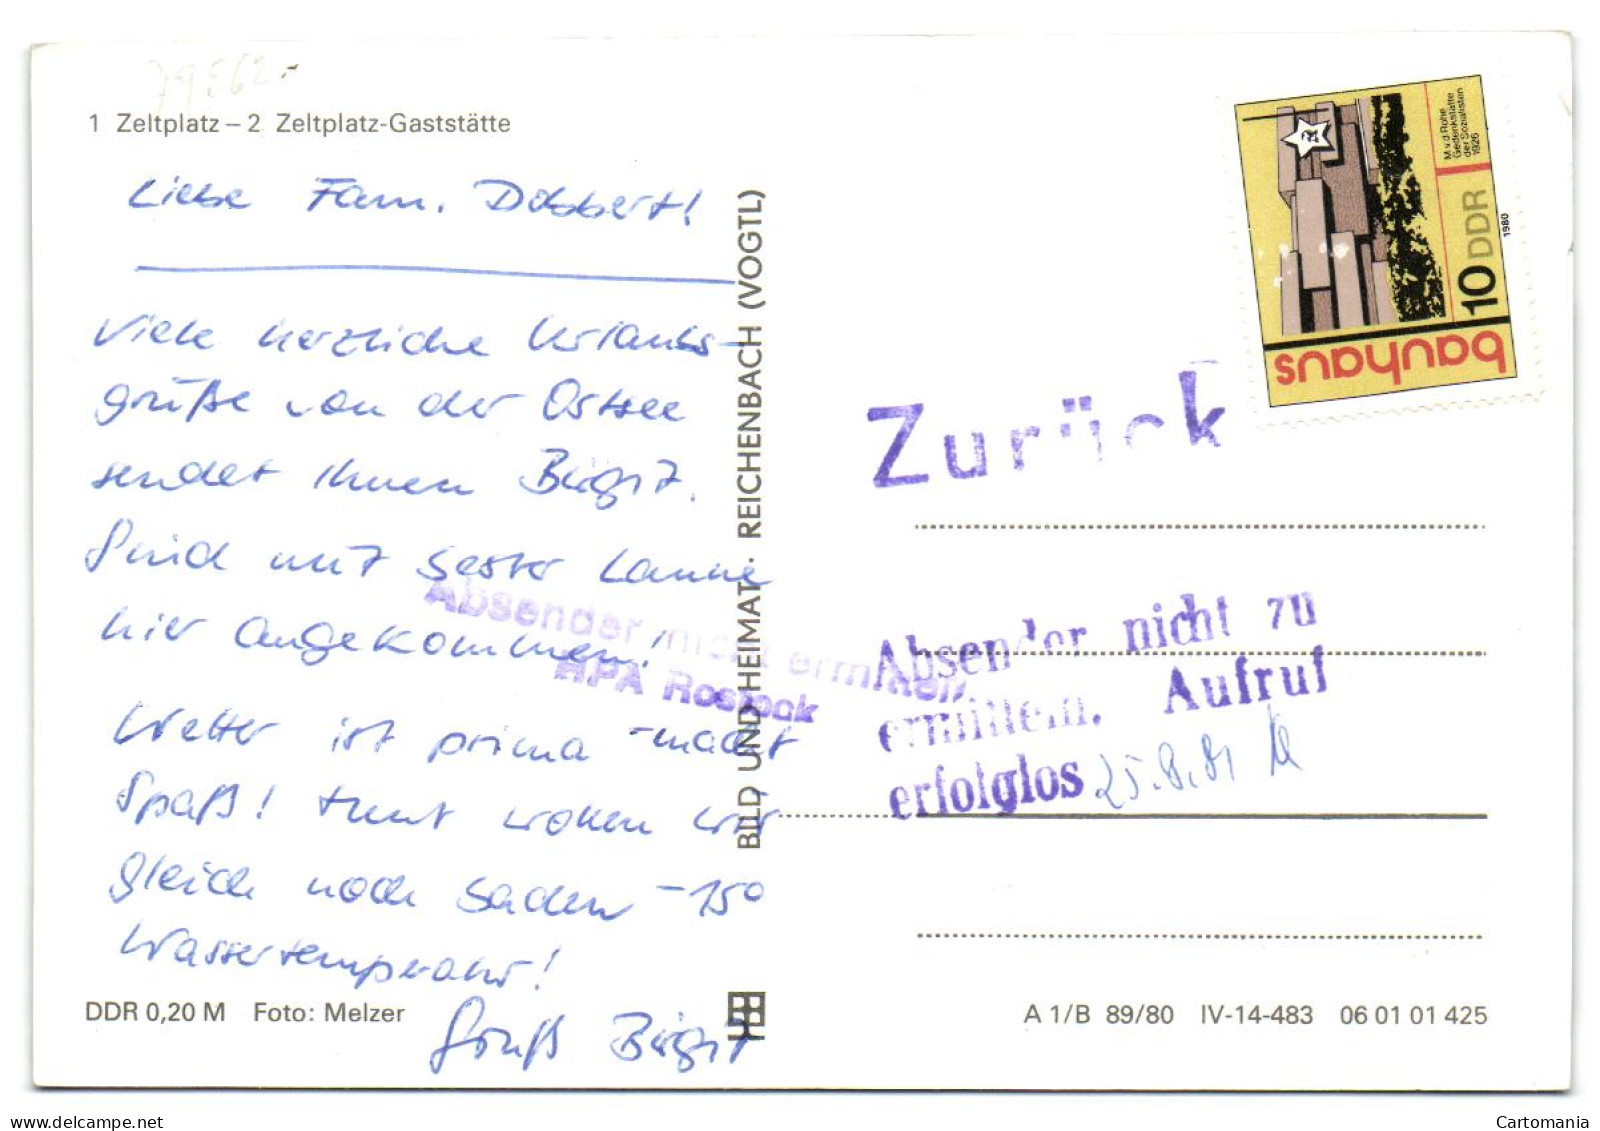 79562.-
1 Zeltplatz – 2 Zeltplatz-Gaststätte
Liebe Fam. Dobbert!
Viele herzliche Urlaubs-
grüße von der Ostsee
sendet Ihnen Birgit.
Sind mit bester Laune
hier angekommen!
Wetter ist prima - macht
Spaß! wollen wir
gleich noch baden - 15°
Wassertemperatur!
Gruß Birgit
DDR 0,20 M Foto: Melzer
BILD UND HEIMAT · REICHENBACH (VOGTL)
Absender nicht ermittelt
HPA Rostock
M.v.d.Rohe
Gedenkstätte
der Sozialisten
1926
10 DDR
1980
bauhaus
Zurück
Absender nicht zu
ermitteln. Aufruf
erfolglos 25.8.81
A 1/B 89/80 IV-14-483 06 01 01 425
Cartomania